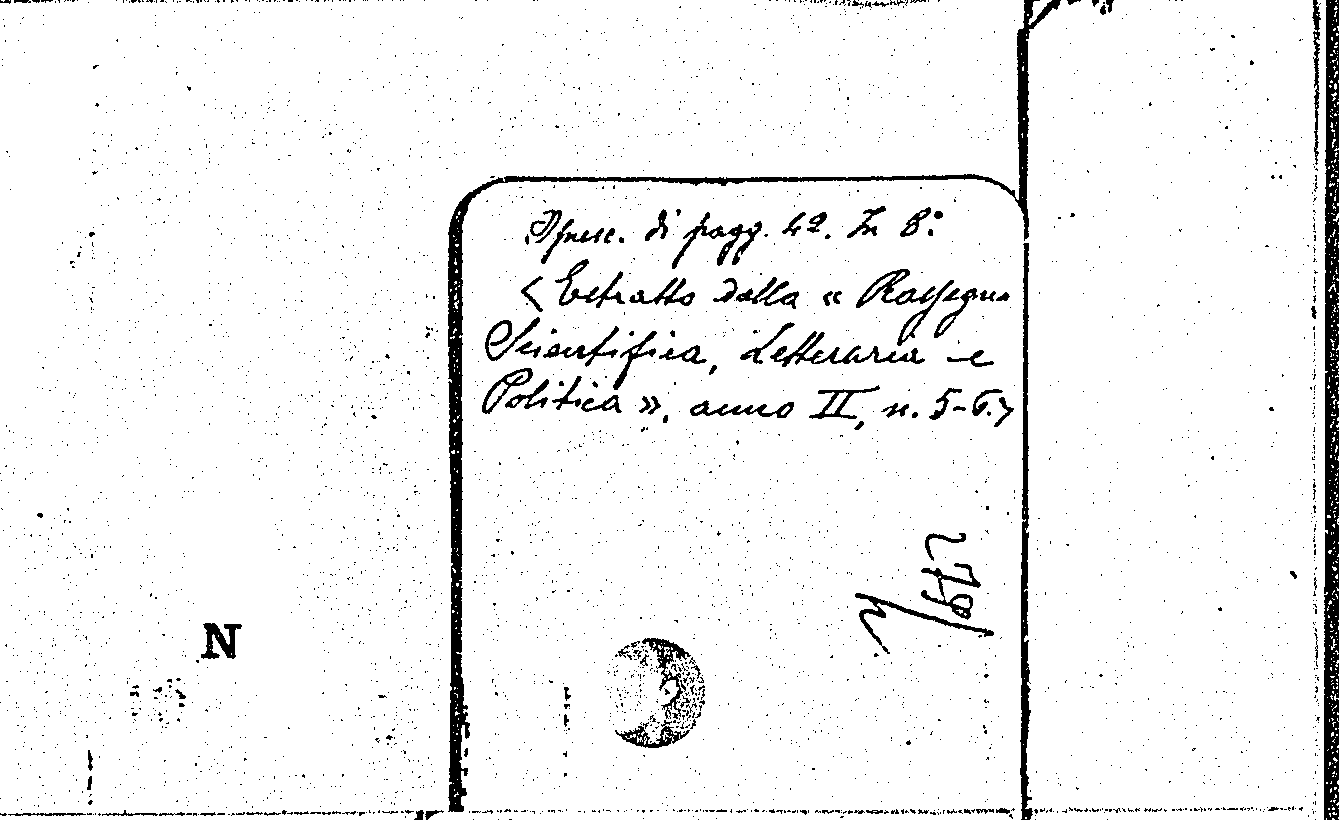 Opusc. di pagg. 42. In 8.°
<Estratto dalla « Rassegna
Scientifica, Letteraria e
Politica », anno II, n. 5-6.>
N